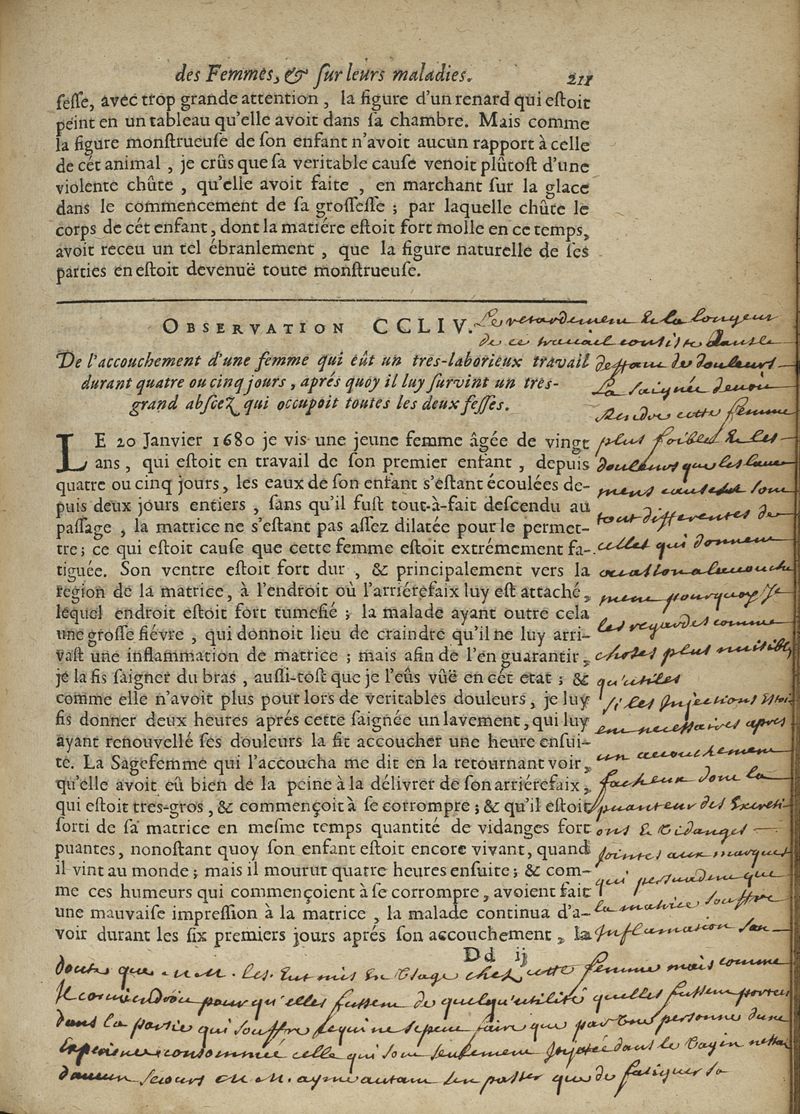 des Femmes, & ſur leurs maladies. 211
ſeſſe, avec trop grande attention, la figure d'un renard qui eſtoit
peint en un tableau qu'elle avoit dans ſa chambre. Mais comme
la figure monſtrueuſe de ſon enfant n'avoit aucun rapport à celle
de cét animal, je crûs que ſa veritable cauſe venoit plûtoſt d'une
violente chûte, qu'elle avoit faite, en marchant ſur la glace
dans le commencement de ſa groſſeſſe; par laquelle chûte le
corps de cét enfant, dont la matiére eſtoit fort molle en ce temps,
avoit receu un tel ébranlement, que la figure naturelle de ſes
parties en eſtoit devenuë toute monſtrueuſe.
OBSERVATION CCLIV.
De l'accouchement d'une femme qui eût un tres-laborieux travail
durant quatre ou cinq jours, aprés quoy il luy ſurvint un tres-
grand abſcez qui occupoit toutes les deux feſſes.
LE 20 Janvier 1680 je vis une jeune femme âgée de vingt
ans, qui eſtoit en travail de ſon premier enfant, depuis
quatre ou cinq jours, les eaux de ſon enfant s'eſtant écoulées de-
puis deux jours entiers, ſans qu'il fuſt tout-à-fait deſcendu au
paſſage, la matrice ne s'eſtant pas aſſez dilatée pour le permet-
tre; ce qui eſtoit cauſe que cette femme eſtoit extrémement fa-
tiguée. Son ventre eſtoit fort dur, & principalement vers la
region de la matrice, à l'endroit où l'arriérefaix luy eſt attaché,
lequel endroit eſtoit fort tumefié; la malade ayant outre cela
une groſſe fiévre, qui donnoit lieu de craindre qu'il ne luy arri-
vaſt une inflammation de matrice; mais afin de l'en guarantir,
je la fis ſaigner du bras, auſſi-toſt que je l'eûs vûë en cét état; &
comme elle n'avoit plus pour lors de veritables douleurs, je luy
fis donner deux heures aprés cette ſaignée un lavement, qui luy
ayant renouvellé ſes douleurs la fit accoucher une heure enſui-
te. La Sagefemme qui l'accoucha me dit en la retournant voir,
qu'elle avoit eû bien de la peine à la délivrer de ſon arriérefaix,
qui eſtoit tres-gros, & commençoit à ſe corrompre; & qu'il eſtoit
ſorti de ſa matrice en meſme temps quantité de vidanges fort
puantes, nonoſtant quoy ſon enfant eſtoit encore vivant, quand
il vint au monde; mais il mourut quatre heures enſuite; & com-
me ces humeurs qui commençoient à ſe corrompre, avoient fait
une mauvaiſe impreſſion à la matrice, la malade continua d'a-
voir durant les ſix premiers jours aprés ſon accouchement, la
Dd ij
Le retardement de la longeur
de ce travail consiste dans le
de douleurs
La saignée devoit
Rendre cette femme
plus foible & les
douleurs que les lave
mens causent sont
tout differentes de
celles qui donnent
occasion a laccouche
ment pourquoy Je
les regardes comme
choses plus nuisible
qu'utiles
Si les Injections
necessaires apres
un accouchement
facheux dont la
puanteur des Excreti
ons & Vidanges
jointes aux marques
qui persuadent que
la matrice souffre
Inflamation san
doute que M. les Eut mis En Usage chez cette femme mais comme
Il conviendroit pour qu'elles fussent de quelqu'utilité quelles fussent portees
dans la partie qui souffre ce qui ne sepeut faire que par une personne dune
Experience consommée celle qui sont seulement Injectée dans le Vagin
daucun secours M. ayme autant sen passer que de fatiguer sa